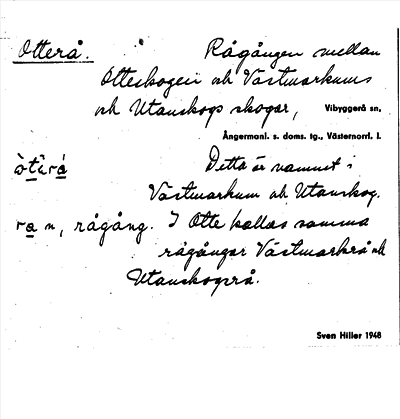 Otterå. Rågången mellan
Otteskogen och Västmarkums
och Utanskogs skogar, Vibyggerå sn,
Ångermanl. s. doms. tg., Västernorrl. l.
òt̀erå Detta är namnet i
Västmarkum och Utanskog.
ra n, rågång. I Otte kallas samma
rågångar Västmarkrå och
Utanskogsrå.
Sven Hiller 1948